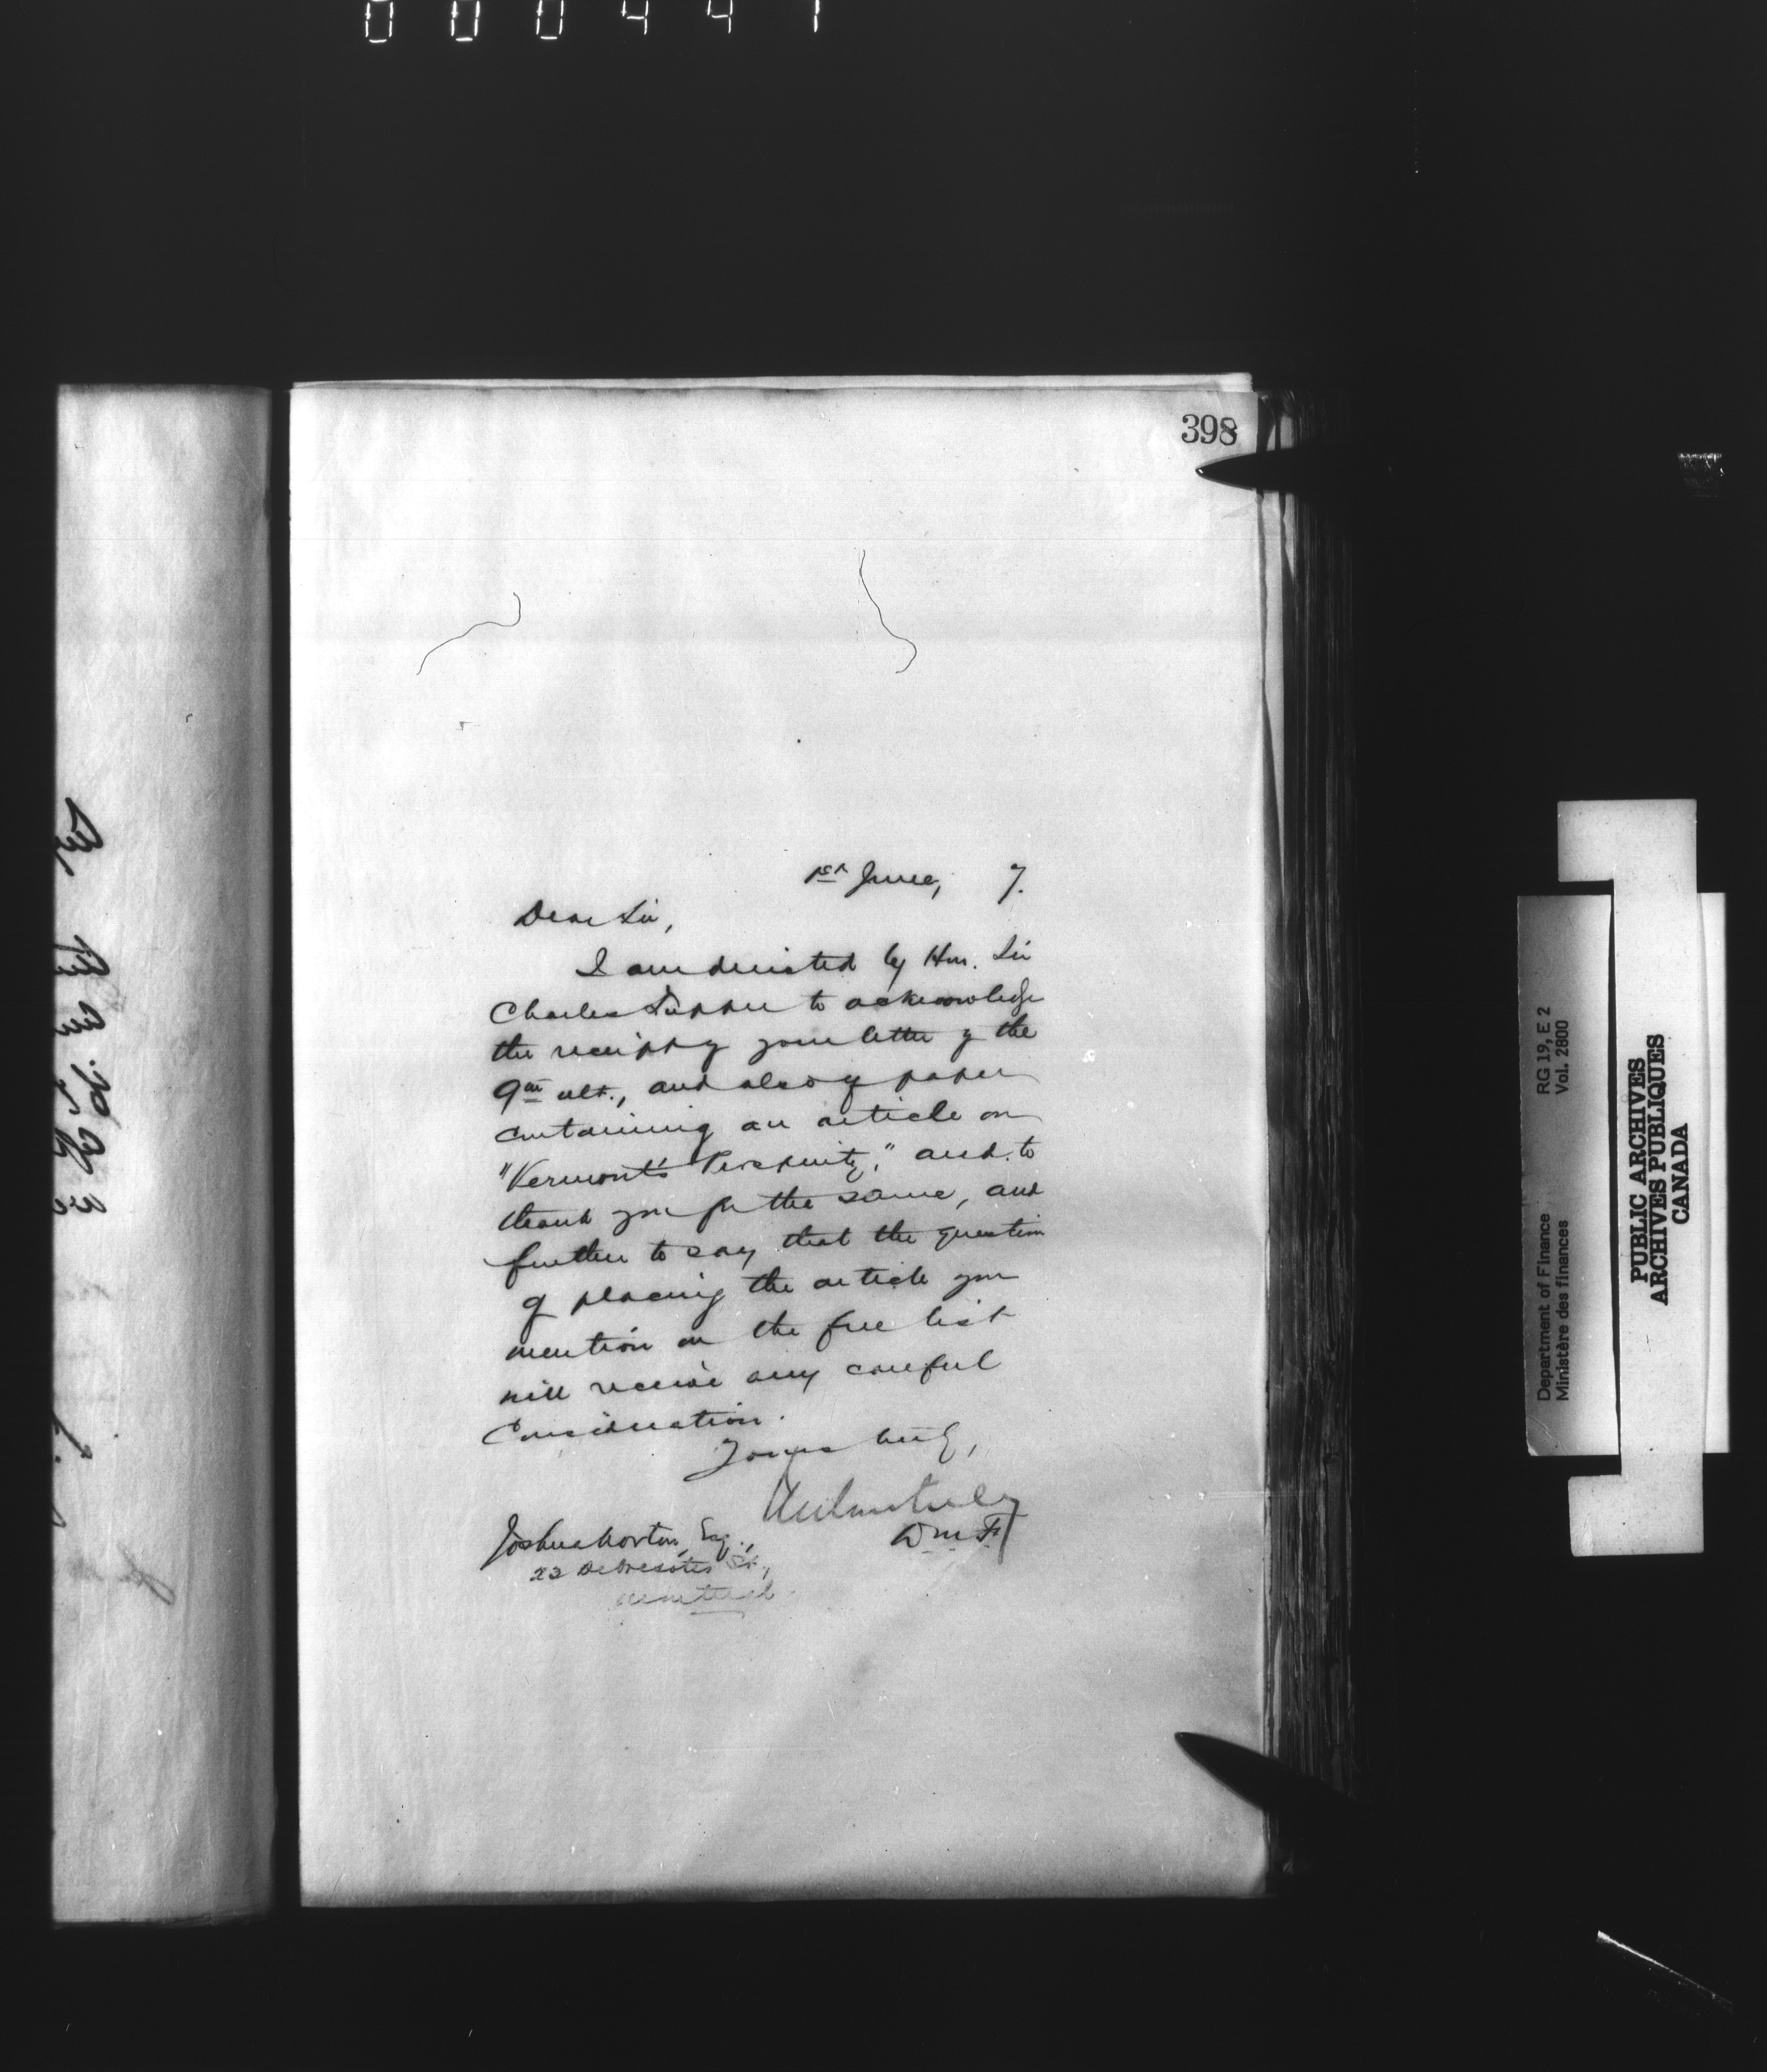 000441
398
1st June, 7.
Dear Sir,
I am directed by Hon. Sir
Charles Tupper to acknowledge
the receipt of your letter of the
9th ult., and also of paper
containing an article on
"Vermont's Prosperity," and to
thank you for the same, and
further to say that the question
of placing the article you
mention on the free list
will receive any careful
consideration.
Yours truly,
D.M.F.
Joshua Norton, Esq.,
22 St.,
Montreal
RG 19, E 2
Vol. 2800
Department of Finance
Ministère des finances
PUBLIC ARCHIVES
ARCHIVES PUBLIQUES
CANADA